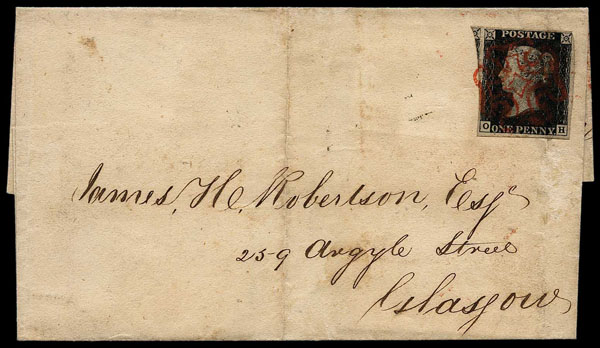 POSTAGE
O ONE PENNY H
James, H, Robertson, Esqr
259 Argyle Street
Glasgow